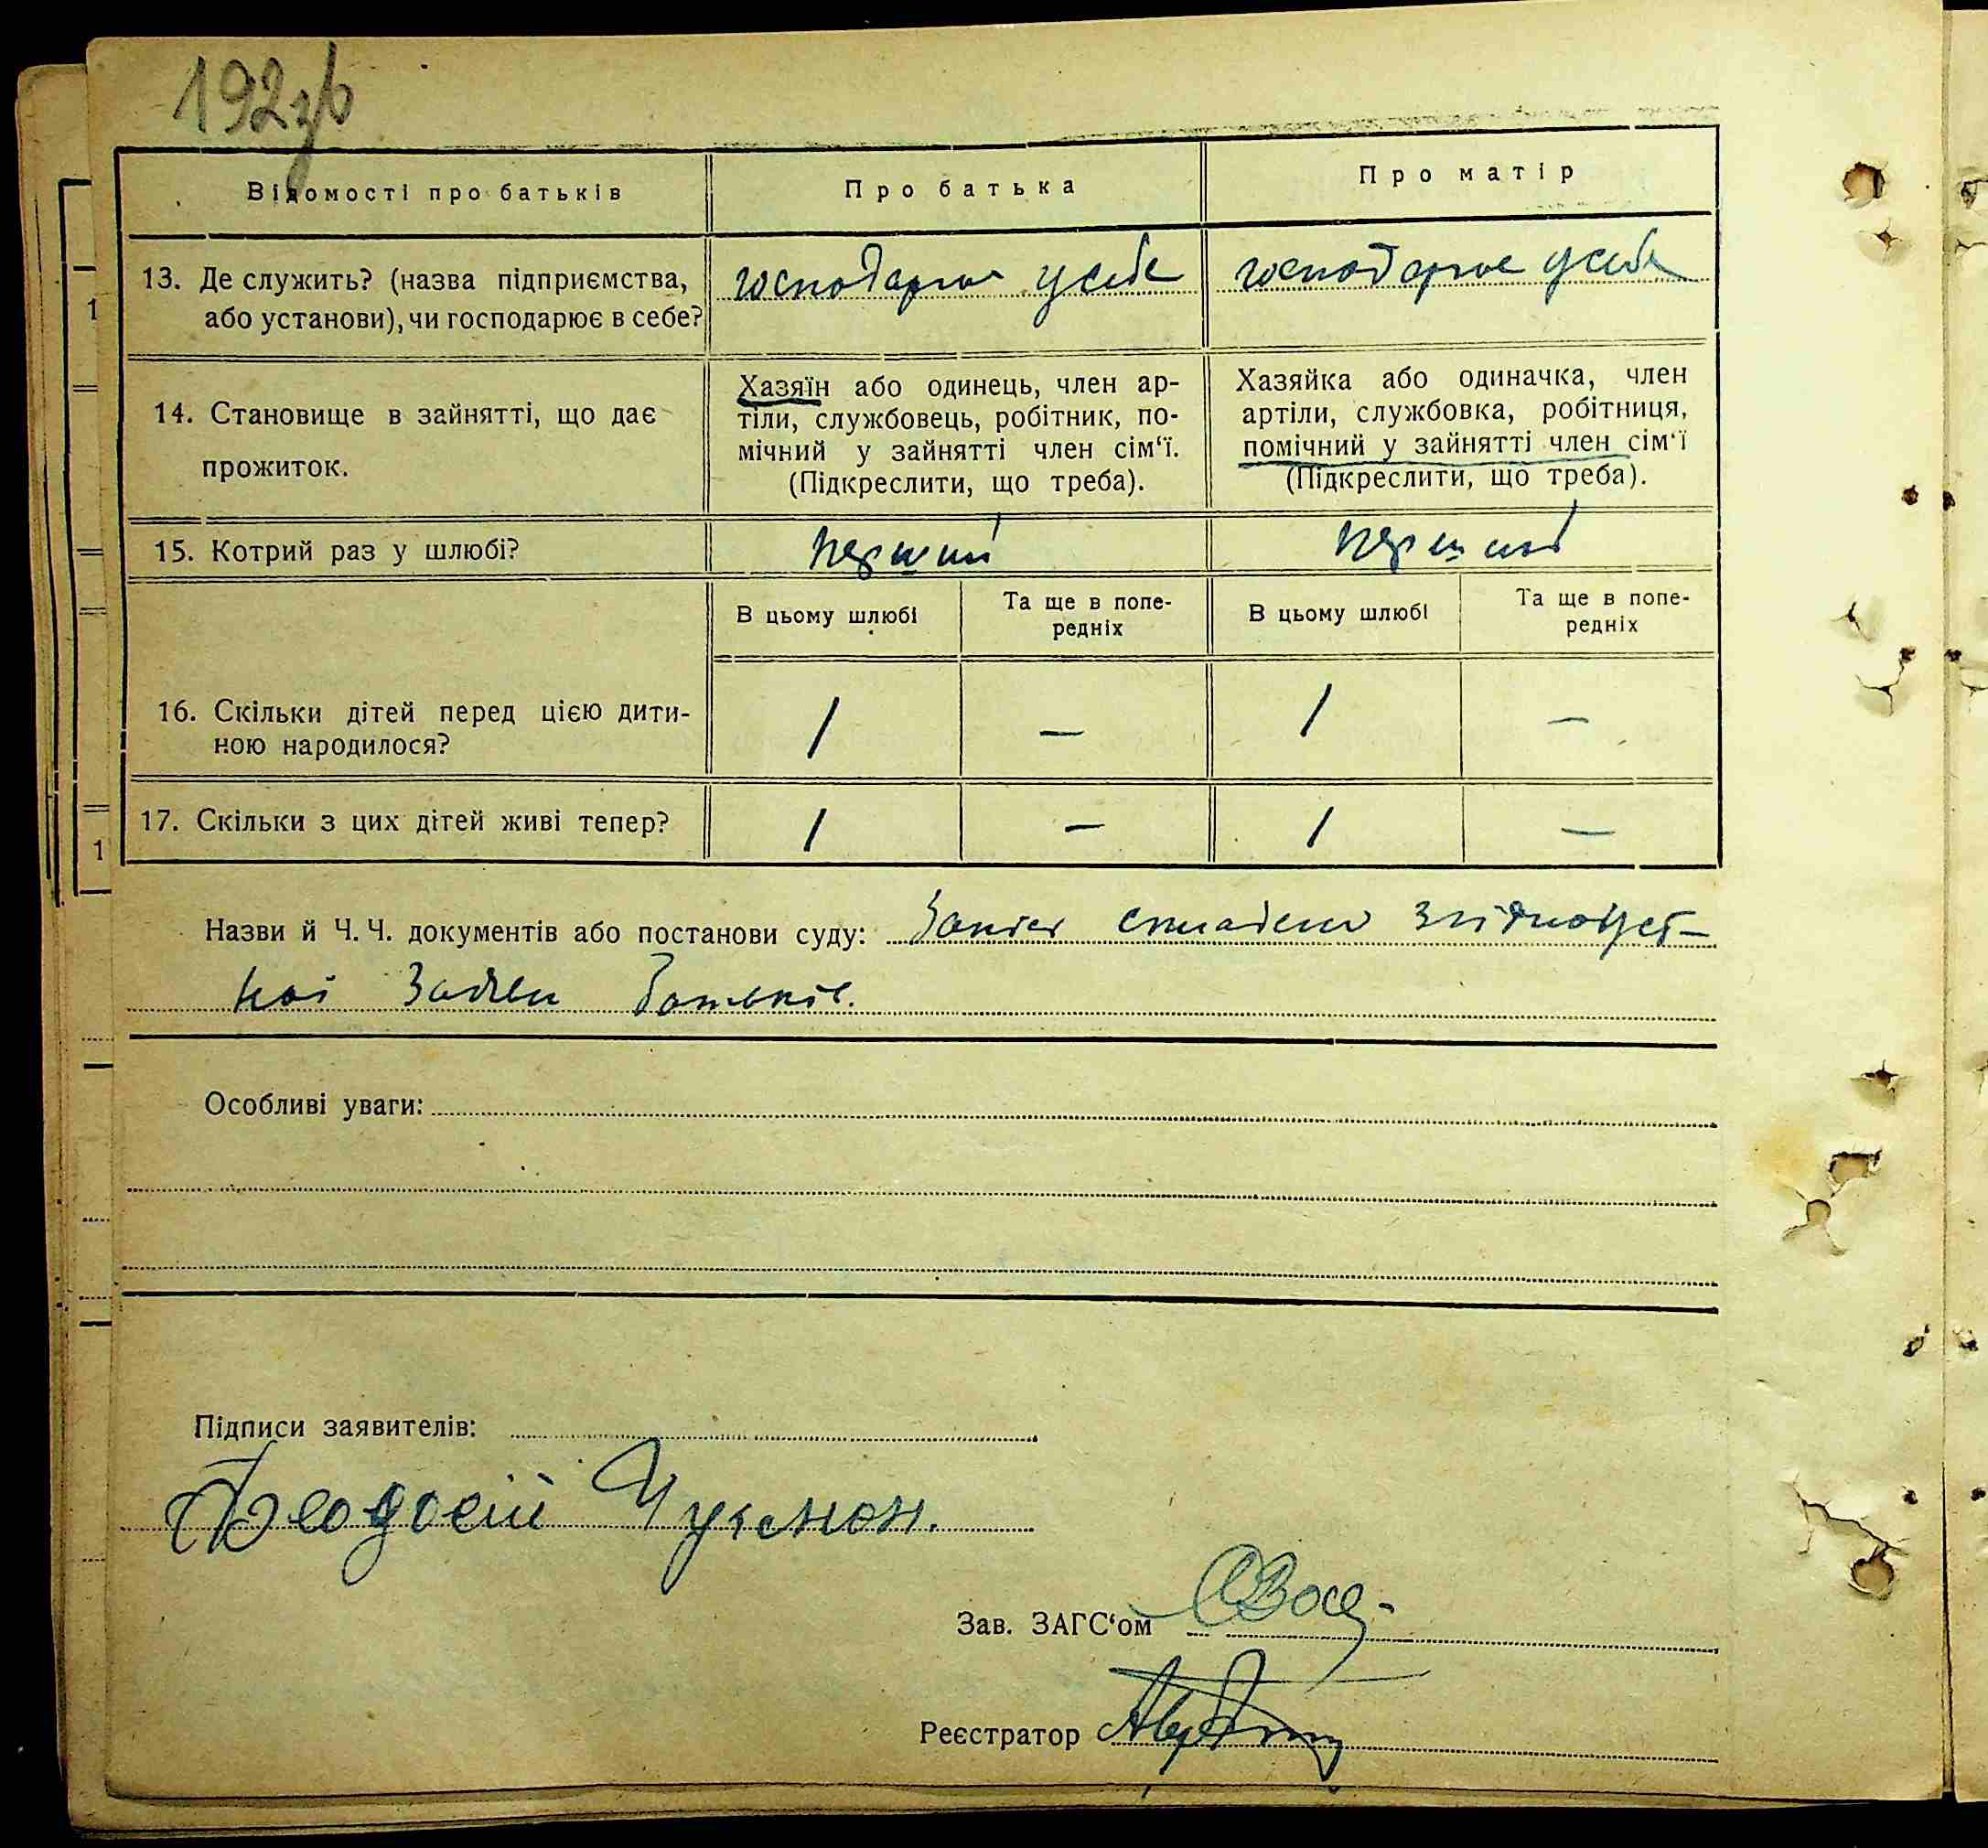 192зв
Відомості про батьків
Про батька
Про матір
13. Де служить? (назва підприємства,
або установи), чи господарює в себе?
господарює у себе
господарює у себе
14. Становище в зайнятті, що дає
прожиток.
Хазяїн або одинець, член ар-
тіли, службовець, робітник, по-
мічний у зайнятті член сім‘ї.
(Підкреслити, що треба).
Хазяйка або одиначка, член
артіли, службовка, робітниця,
помічний у зайнятті член сім‘ї
(Підкреслити, що треба).
15. Котрий раз у шлюбі?
перший
перший
В цьому шлюбі
Та ще в попе-
редніх
В цьому шлюбі
Та ще в попе-
редніх
16. Скільки дітей перед цією дити-
ною народилося?
1 — 1 —
17. Скільки з цих дітей живі тепер?
1 — 1 —
Назви й Ч. Ч. документів або постанови суду: Запис складено згідно уст-
ної заяви батьків.
Особливі уваги:
Підписи заявителів:
Зав. ЗАГС‘ом
Реєстратор
1
1